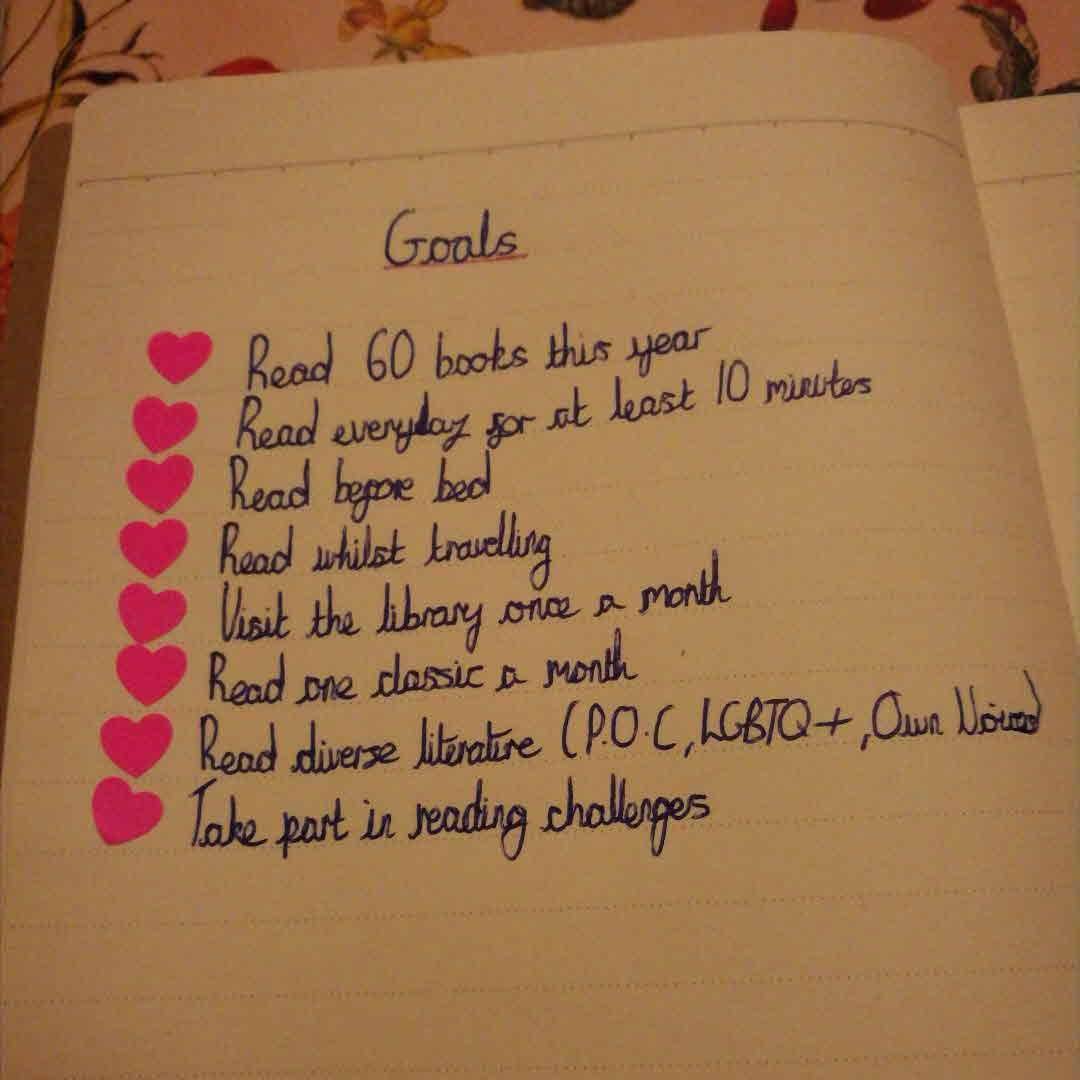 Goals
Read 60 books this year
Read everyday for at least 10 minutes
Read before bed
Read whilst travelling
Visit the library once a month
Read one classic a month
Read diverse literature (P.O.C, LGBTQ+, Own Voices)
Take part in reading challenges